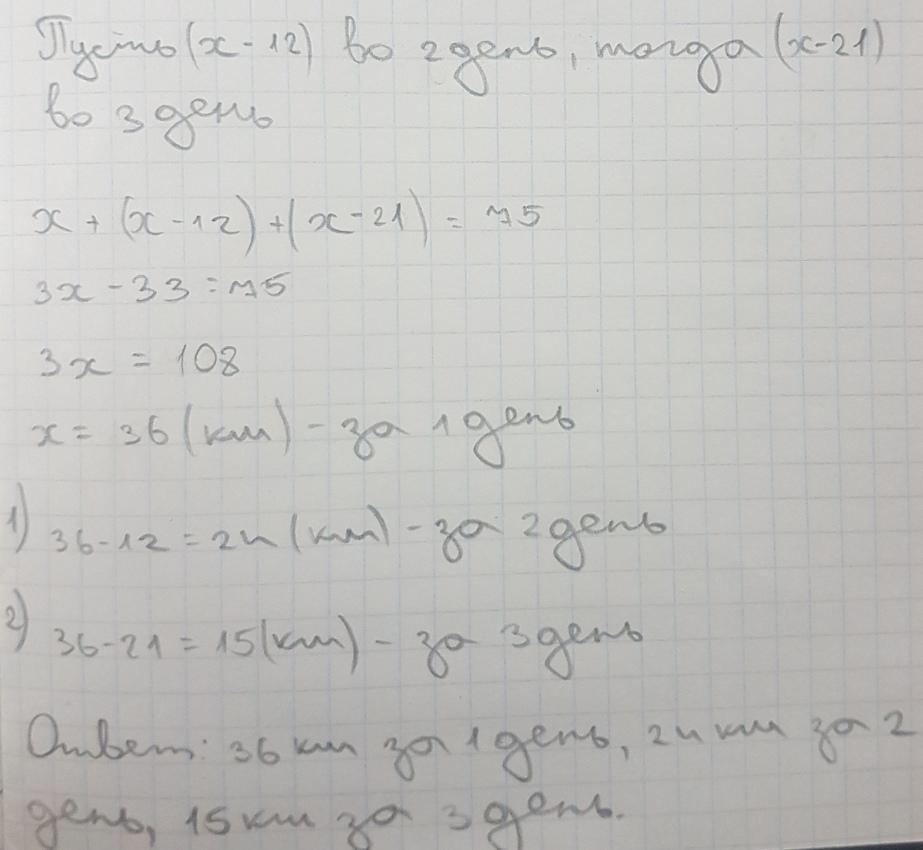 Пусть (x-12) во 2 день, тогда (x-21)
во 3 день
x + (x-12)+(x-21) = 75
3x - 33 = 75
3x = 108
x = 36 (км) - за 1 день
1) 36-12 = 24 (км) - за 2 день
2) 36-21 = 15 (км) - за 3 день
Ответ: 36 км за 1 день, 24 км за 2
день, 15 км за 3 день.